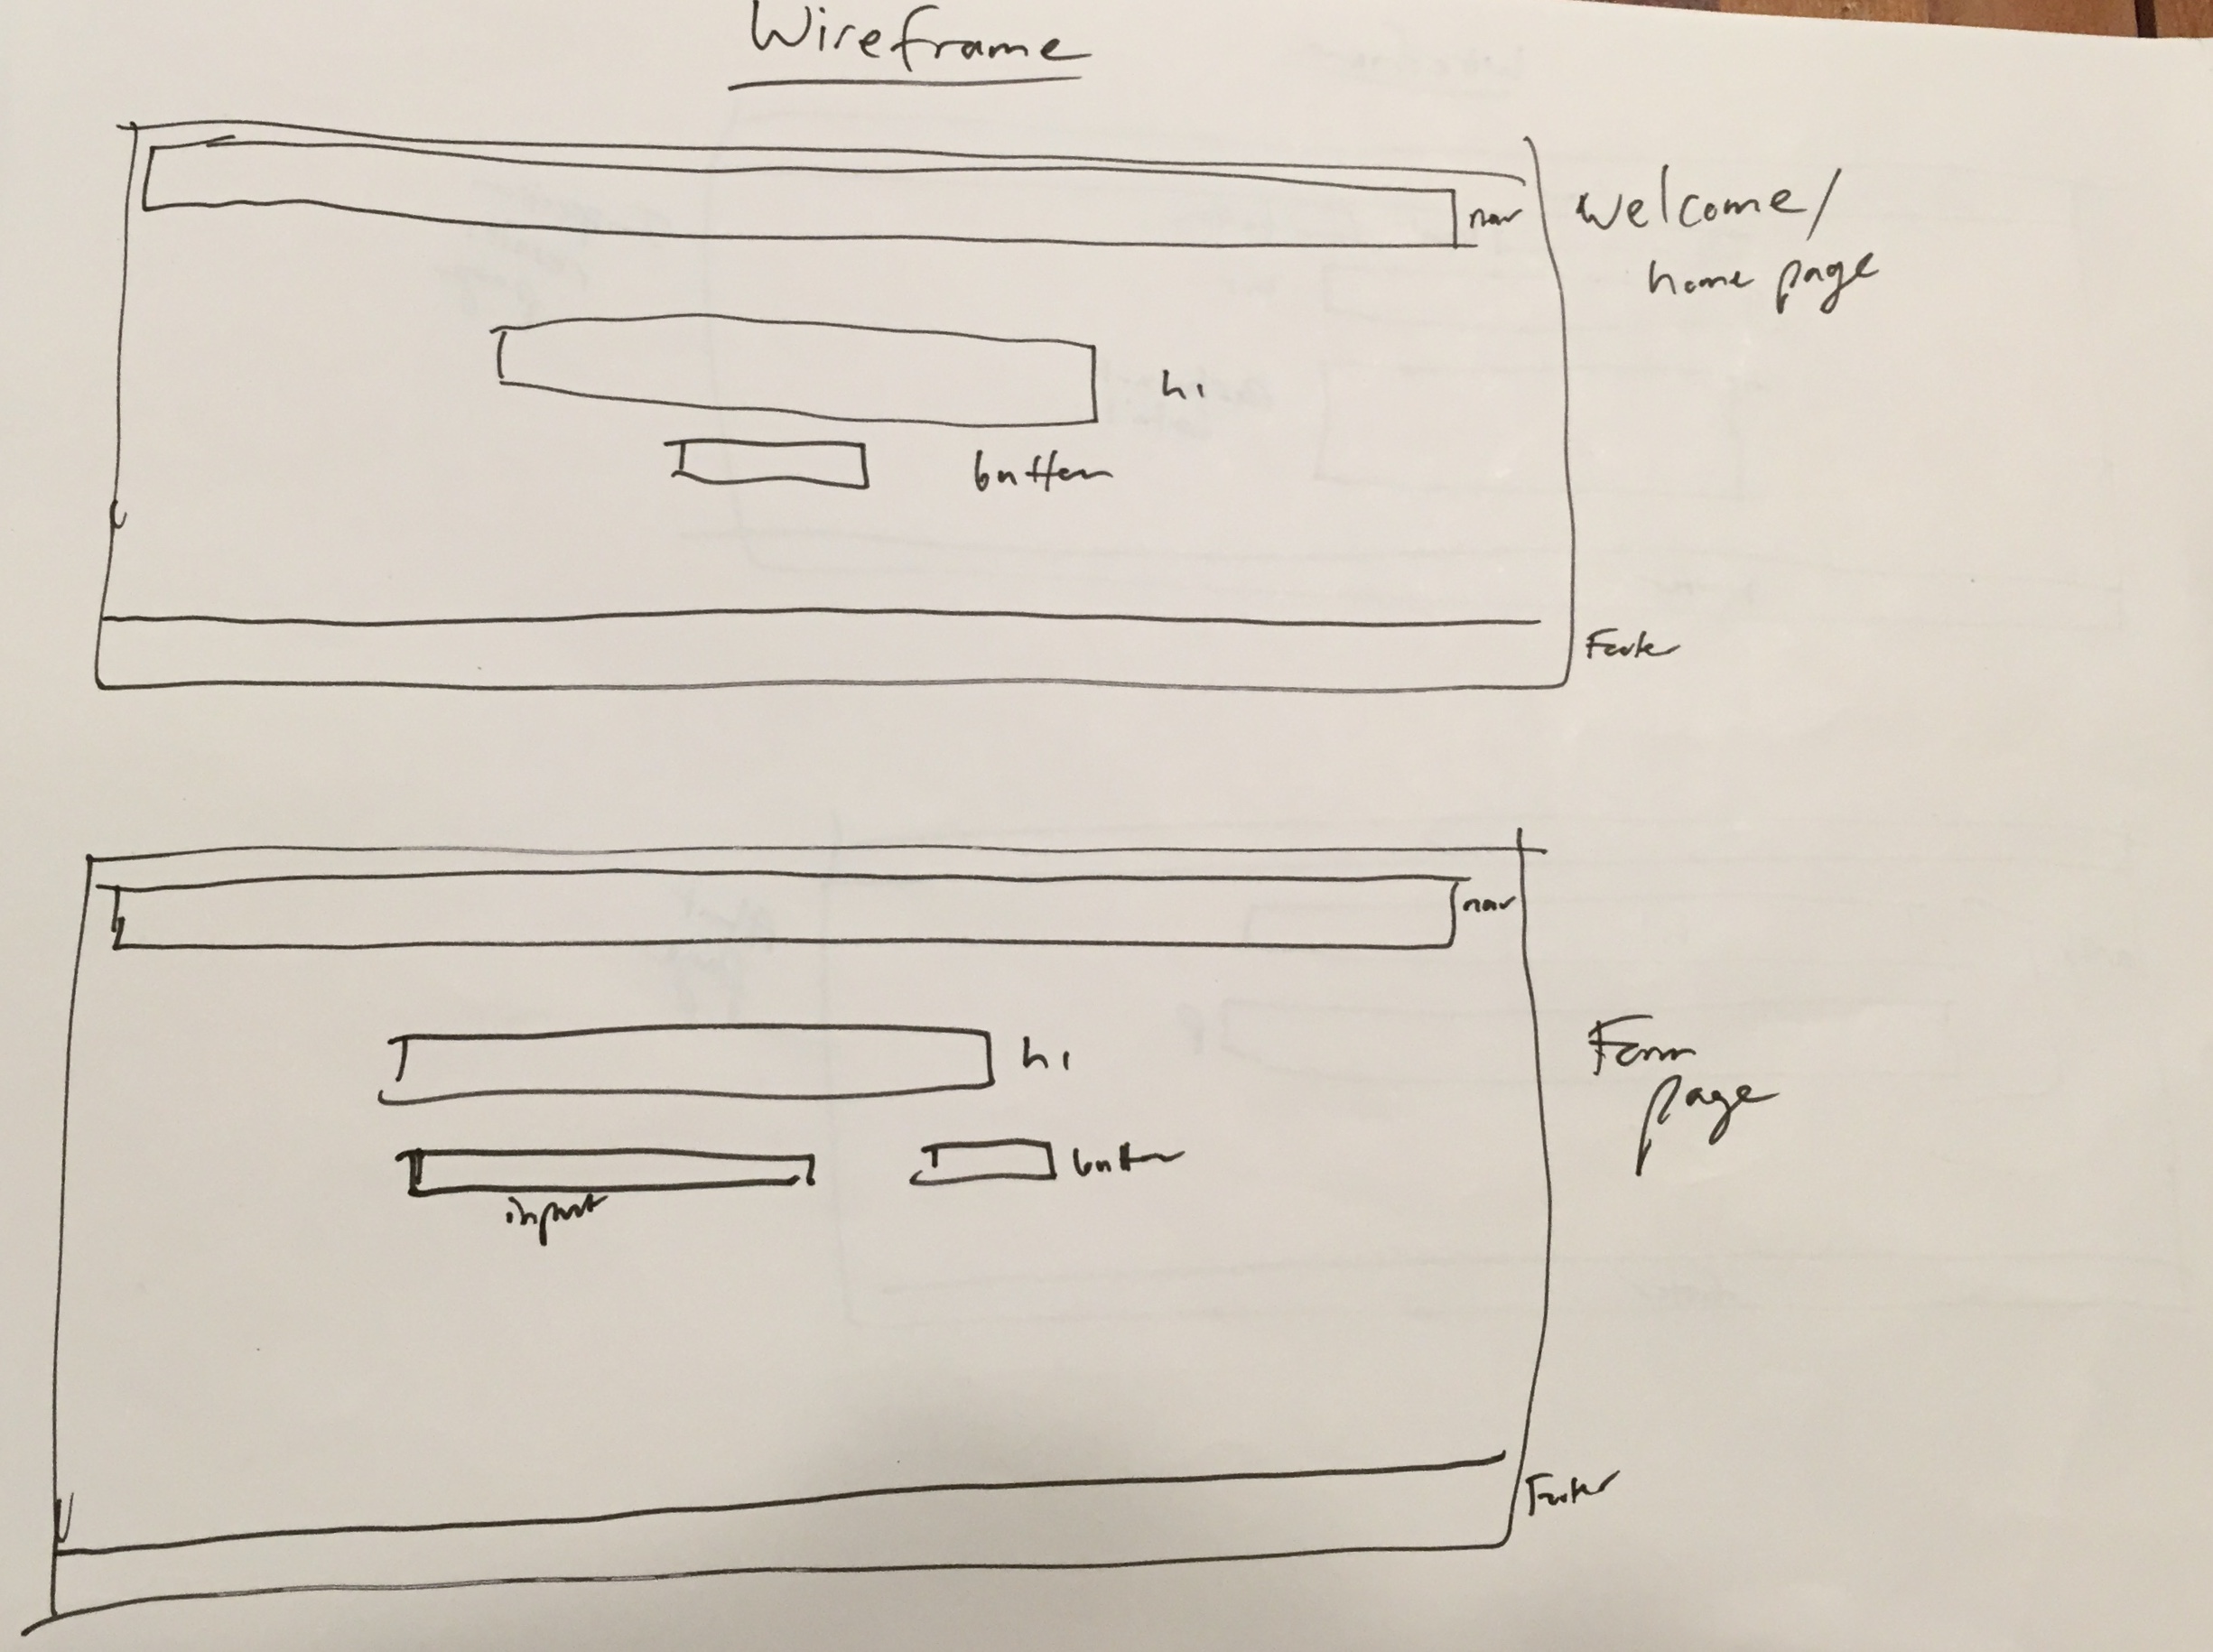 Wireframe
nav
Welcome/
home page
h1
button
Footer
nav
h1
Form
page
input
button
Footer